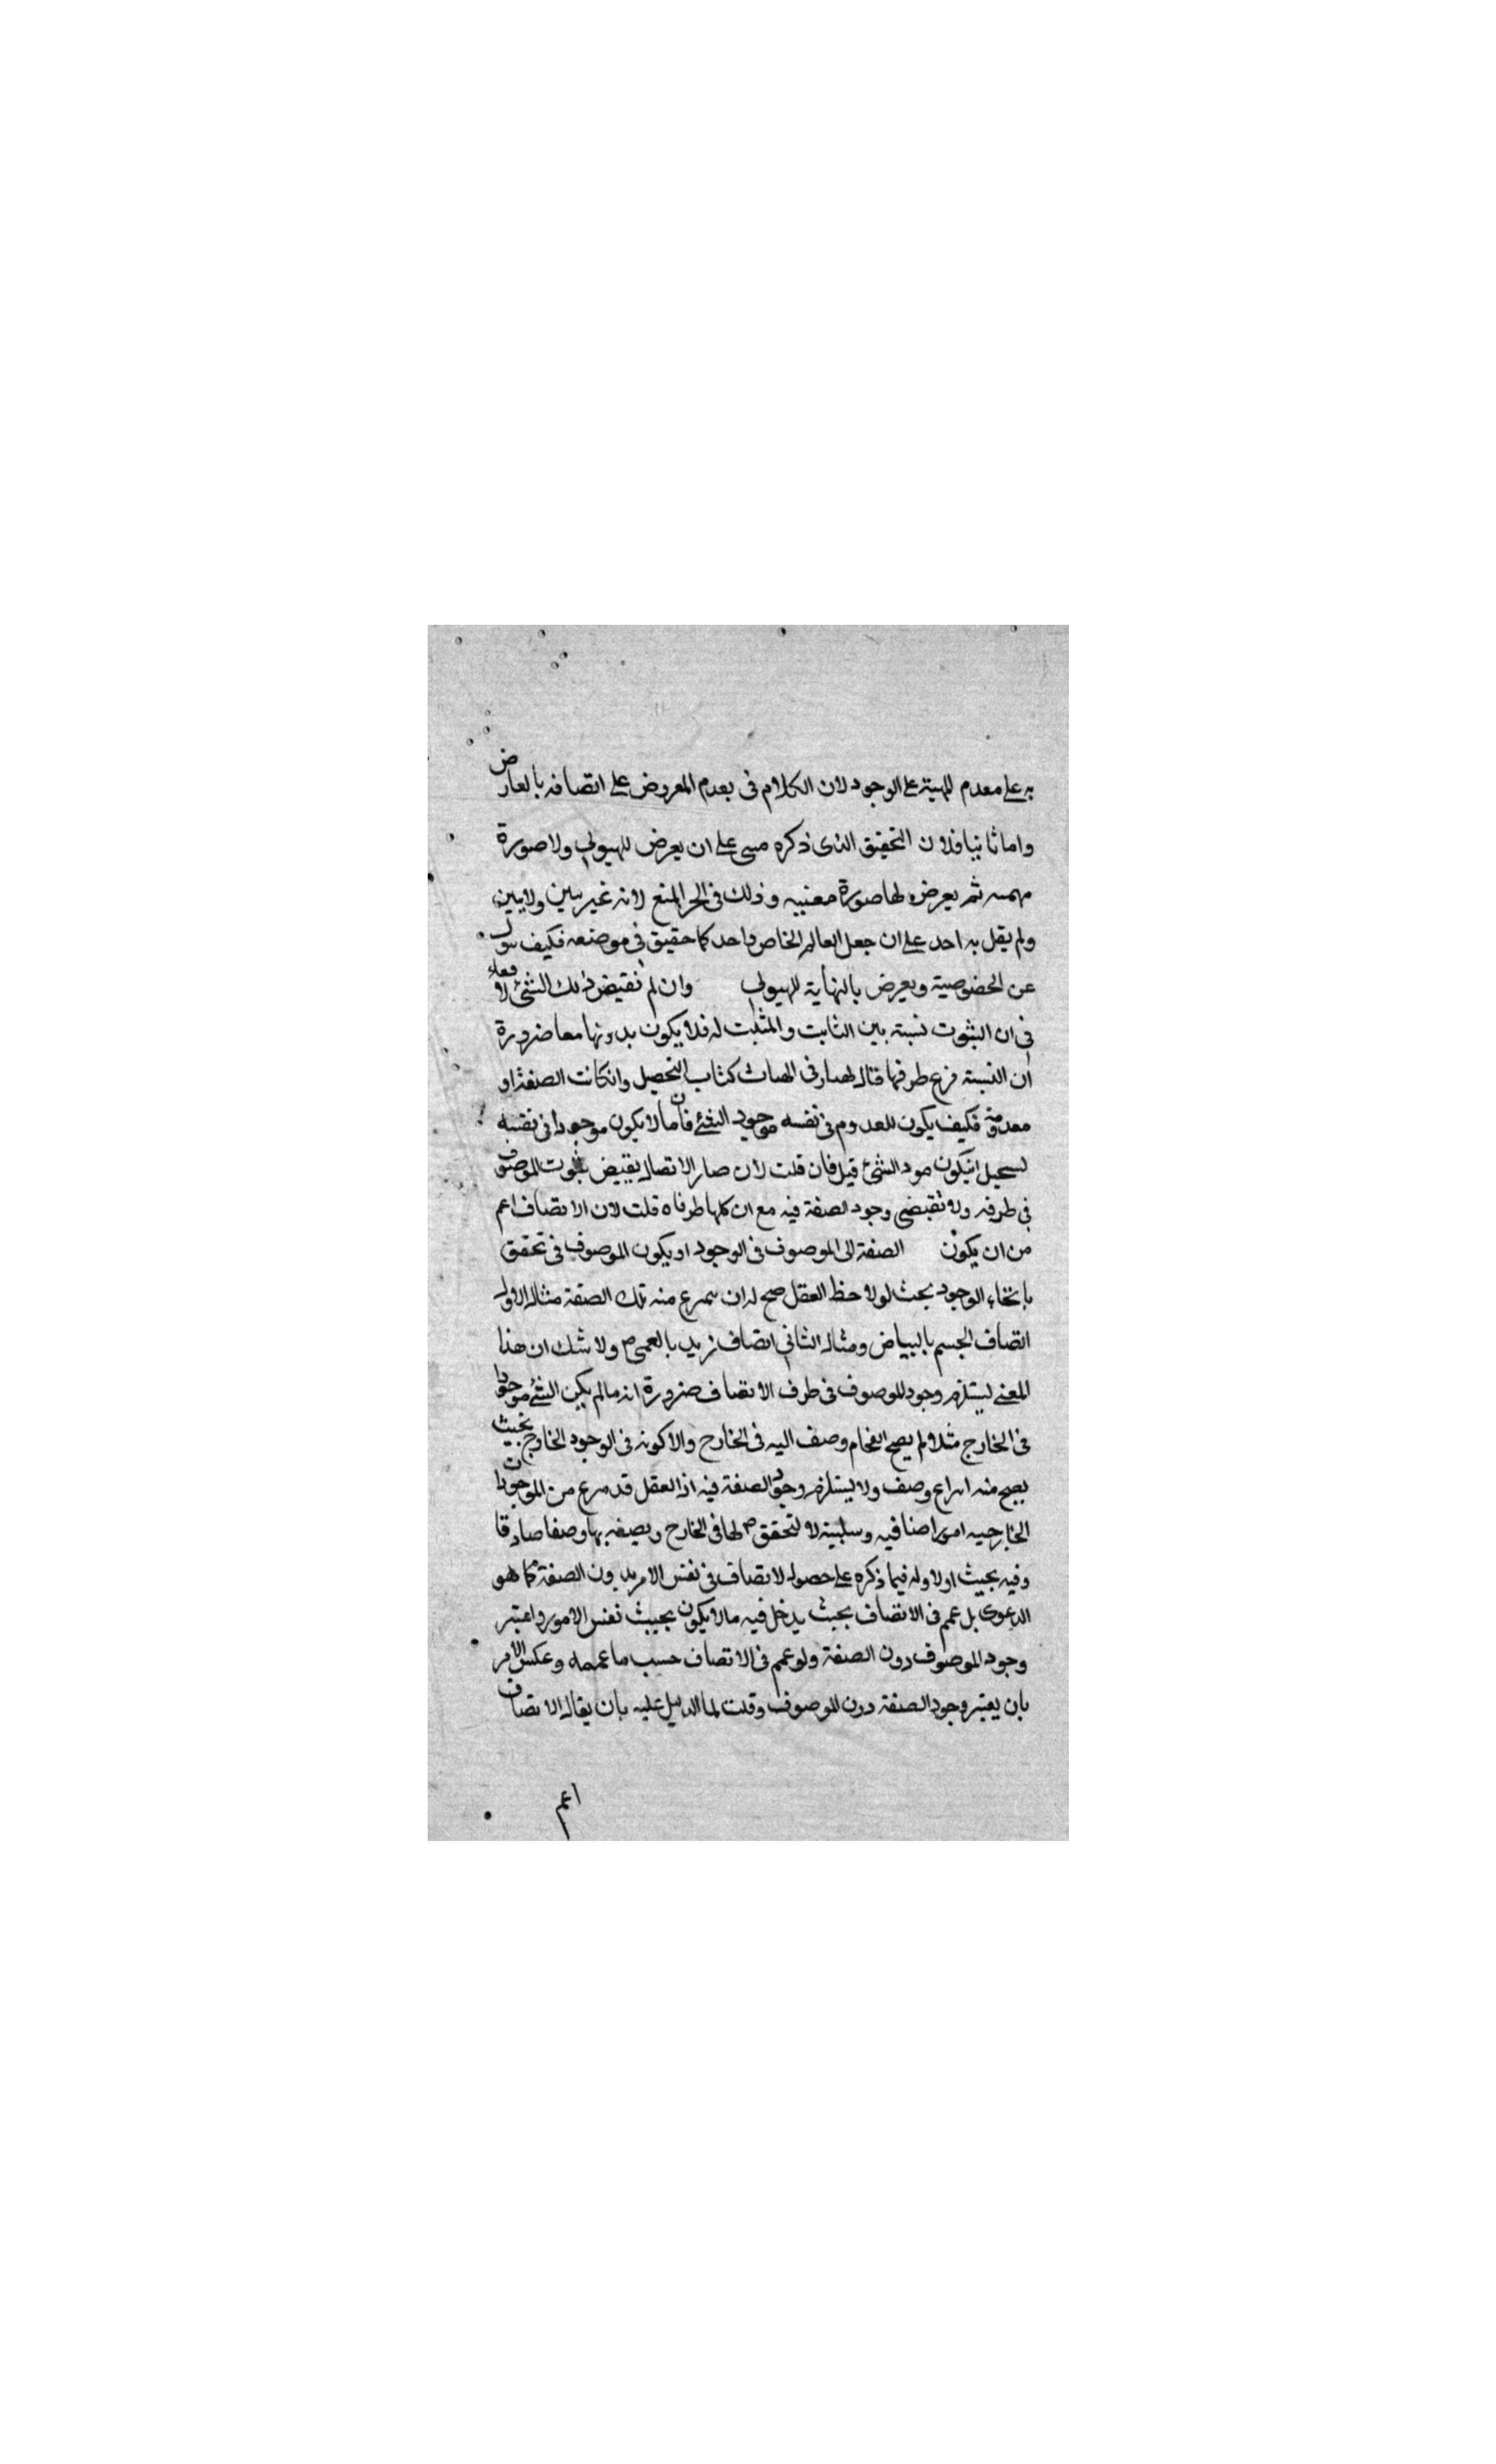 به على معدم للهية على الوجود لان الكلام فى بعدم المعروض على اتصافه بالعارض
واما ثانيا فلان التحقيق الذى ذكره مبنى على ان يعرض للهيولى ولا صورة
مهمه ثم يعرض لها صورة معنيه وذلك فى المنع لانه غير بين ولا يبين
ولم يقل به احد على ان جعل العالم الخاص واحد كما حقيق فى موضعه فكيف
عن الخصوصية ويعرض بالنهاية للهيولى وان لم نقيض ذلك الشئ لا
فى ان الثبوت نسبته بين الثابت والمثبت له فلا يكون بدونها معا ضرورة
ان النسبة فرع طرفها قال فى كتاب التحصيل وانكانت الصفة او
معدومة فكيف يكون للعدوم فى نفسه موجود الشئ فان ما لا يكون موجودا فى نفسه
انيكون الشئ قيل فان قلت لان صار الاتصال يقيض ثبوت الموصوف
فى طرفه ولا تقبضى وجود الصفة فيه مع ان كلها طرفاه قلت لان الاتصاف اعم
من ان يكون الصفة الى الموصوف فى الوجود او يكون الموصوف فى تحقق
بانتحاء الوجود بحث لو لاحظ العقل صح له ان منه تلك الصفة مثال الاول
اتصاف الجسم بالبياض ومثال الثانى اتصاف زيد بالعمى ولا شك ان هذا
المعنى ليستلزم وجود للوصوف فى طرف الاتصاف ضرورة انه ما لم يكن الشئ موجودا
فى الخارج مثلا لم يصح وصف اليه فى الخارج والا كونه فى الوجود الخارج بحيث
يصح منه وصف ولا ليستلزم وجود الصفة فيه اذ العقل قد من الموجودات
الخارجيه امورا اضافيه وسلبية لا تحقق لها فى الخارج ويصفه بها وصفا صادقا
وفيه بحيث اولا وله فيما ذكره على حصول لاتصاف فى نفس الامر بدون الصفة كما هو
الدعوى بل عمم فى الاتصاف بحيث يدخل فيه ما لا يكون بحيث نفس الامور واعتبر
وجود الموصوف دون الصفة ولو عمم فى الاتصاف حسب ما عممه وعكس الامر
بان يعتبر وجود الصفة دون للوصوف وقلت لما الدليل عليه بان يقال الاتصاف
اعم